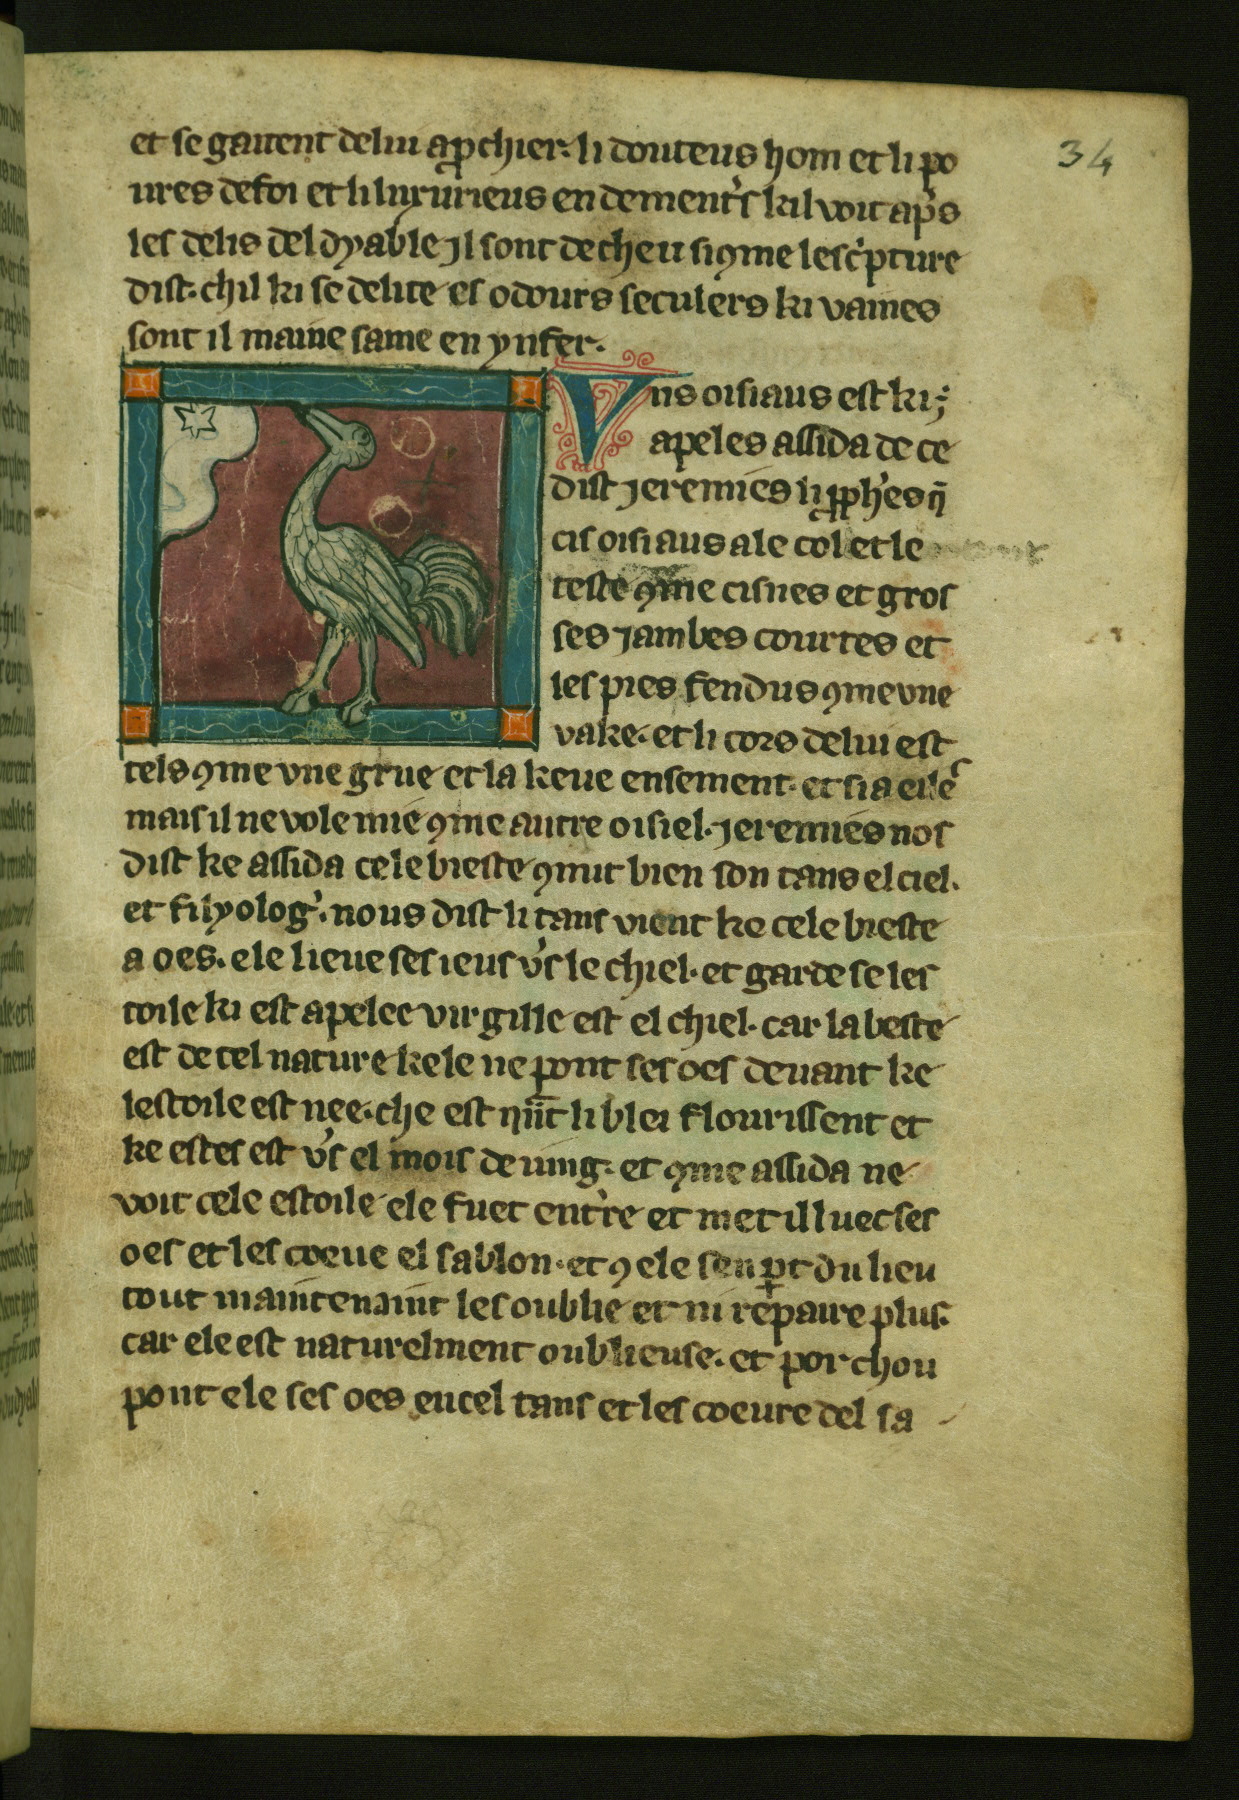 34
et se gaitent delui aprchier. li douteus hom et li po
ures de foi et li luxurieus en dementrs kil voit aprs
les delis del dyable Jl sont decheu si 9me lescripture
dist. chil ki se delite es odours seculers ki vaines
sont il maine same en ynfer.
Vns oisiaus est ki
apeles assida de ce
dist Jeremies li pphes q̄
cis oisiaus a le col et le
teste 9me cisnes et gros
ses Jambes courtes et
les pies fendus 9me vne
vake. et li cors delui est
tels 9me vne grue et la keue ensement. et si a eiles
mais il ne vole mie 9me autre oisiel. Jeremies nos
dist ke assida cele bieste 9nut bien son tans el ciel.
et filyolog'. nous dist li tans vient ke cele bieste
a oes. ele lieue ses ieus v's le chiel. et garde se les
toile ki est apelee virgille est el chiel. car la beste
est de tel nature kele ne pont ses oes deuant ke
lestoile est nee. che est qn̄t li blei flourissent et
ke estes est v's el mois de iuing. et 9me assida ne
voit cele estoile ele fuet entre et met illuec ses
oes et les coeue el sablon. et 9 ele sen pt du lieu
tout maintenaint les oublie et ni repaire plus.
car ele est naturelment oublieuse. et por chou
pont ele ses oes en cel tans et les coeure del sa